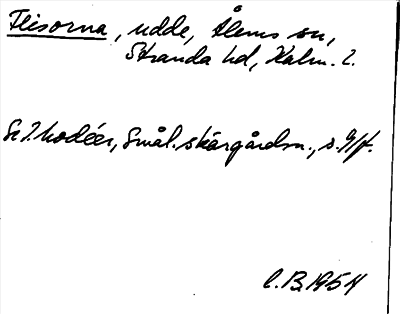 Flisorna, udde, Ålems sn,
Stranda hd, Kalm. l.
Se I. Modéer, Smål. skärgårdsn., s. 91 f.
C.B. 1954